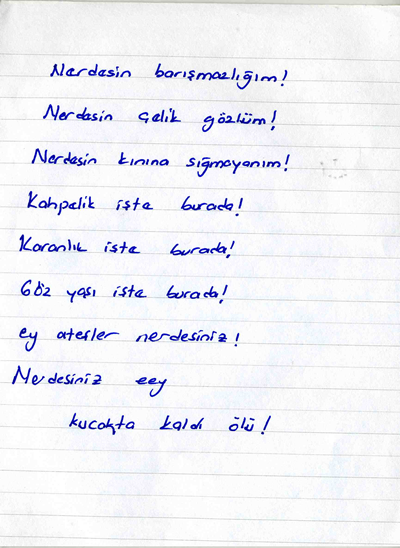 Nerdesin barışmazlığım!
Nerdesin çelik gözlüm!
Nerdesin kınına sığmayanım!
Kahpelik işte burada!
Karanlık işte burada!
Göz yaşı işte burada!
ey ateşler nerdesiniz!
Nerdesiniz eey
kucakta kaldı ölü!